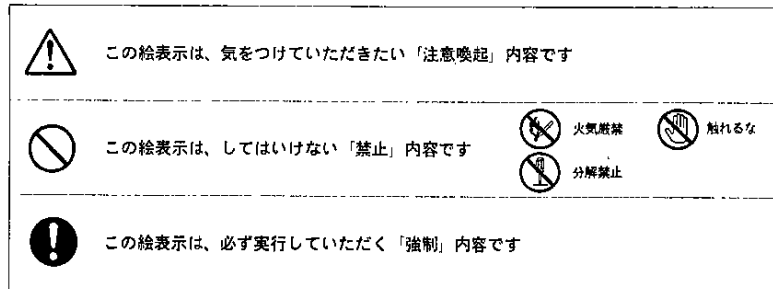 この絵表示は、気をつけていただきたい「注意喚起」内容です
この絵表示は、してはいけない「禁止」内容です
火気厳禁
触れるな
分解禁止
この絵表示は、必ず実行していただく「強制」内容です